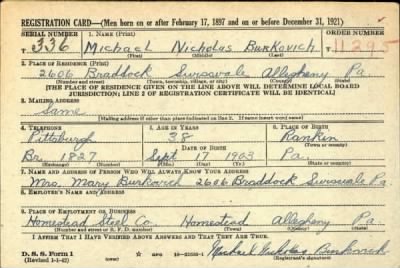 REGISTRATION CARD—(Men born on or after February 17, 1897 and on or before December 31, 1921)
SERIAL NUMBER 1. NAME (Print) ORDER NUMBER
T 336 Michael Nicholas Burkovich T 11295
(First) (Middle) (Last)
2. PLACE OF RESIDENCE (Print)
2606 Braddock Swissvale Allegheny Pa
(Number and street) (Town, township, village, or city) (County) (State)
[THE PLACE OF RESIDENCE GIVEN ON THE LINE ABOVE WILL DETERMINE LOCAL BOARD
JURISDICTION; LINE 2 OF REGISTRATION CERTIFICATE WILL BE IDENTICAL]
3. MAILING ADDRESS
Same
[Mailing address if other than place indicated on line 2. If same insert word same]
4. TELEPHONE 5. AGE IN YEARS 6. PLACE OF BIRTH
Pittsburgh 38 Rankin
DATE OF BIRTH (Town or county)
Br. 827 Sept 17 1903 Pa.
(Exchange) (Number) (Mo.) (Day) (Yr.) (State or country)
7. NAME AND ADDRESS OF PERSON WHO WILL ALWAYS KNOW YOUR ADDRESS
Mrs. Mary Burkovich 2606 Braddock Swissvale Pa.
8. EMPLOYER'S NAME AND ADDRESS
9. PLACE OF EMPLOYMENT OR BUSINESS
Homestead Steel Co. Homestead Allegheny Pa
(Number and street or R. F. D. number) (Town) (County) (State)
I AFFIRM THAT I HAVE VERIFIED ABOVE ANSWERS AND THAT THEY ARE TRUE.
D. S. S. Form 1
(Revised 1-1-42) GPO Michael Nicholas Burkovich